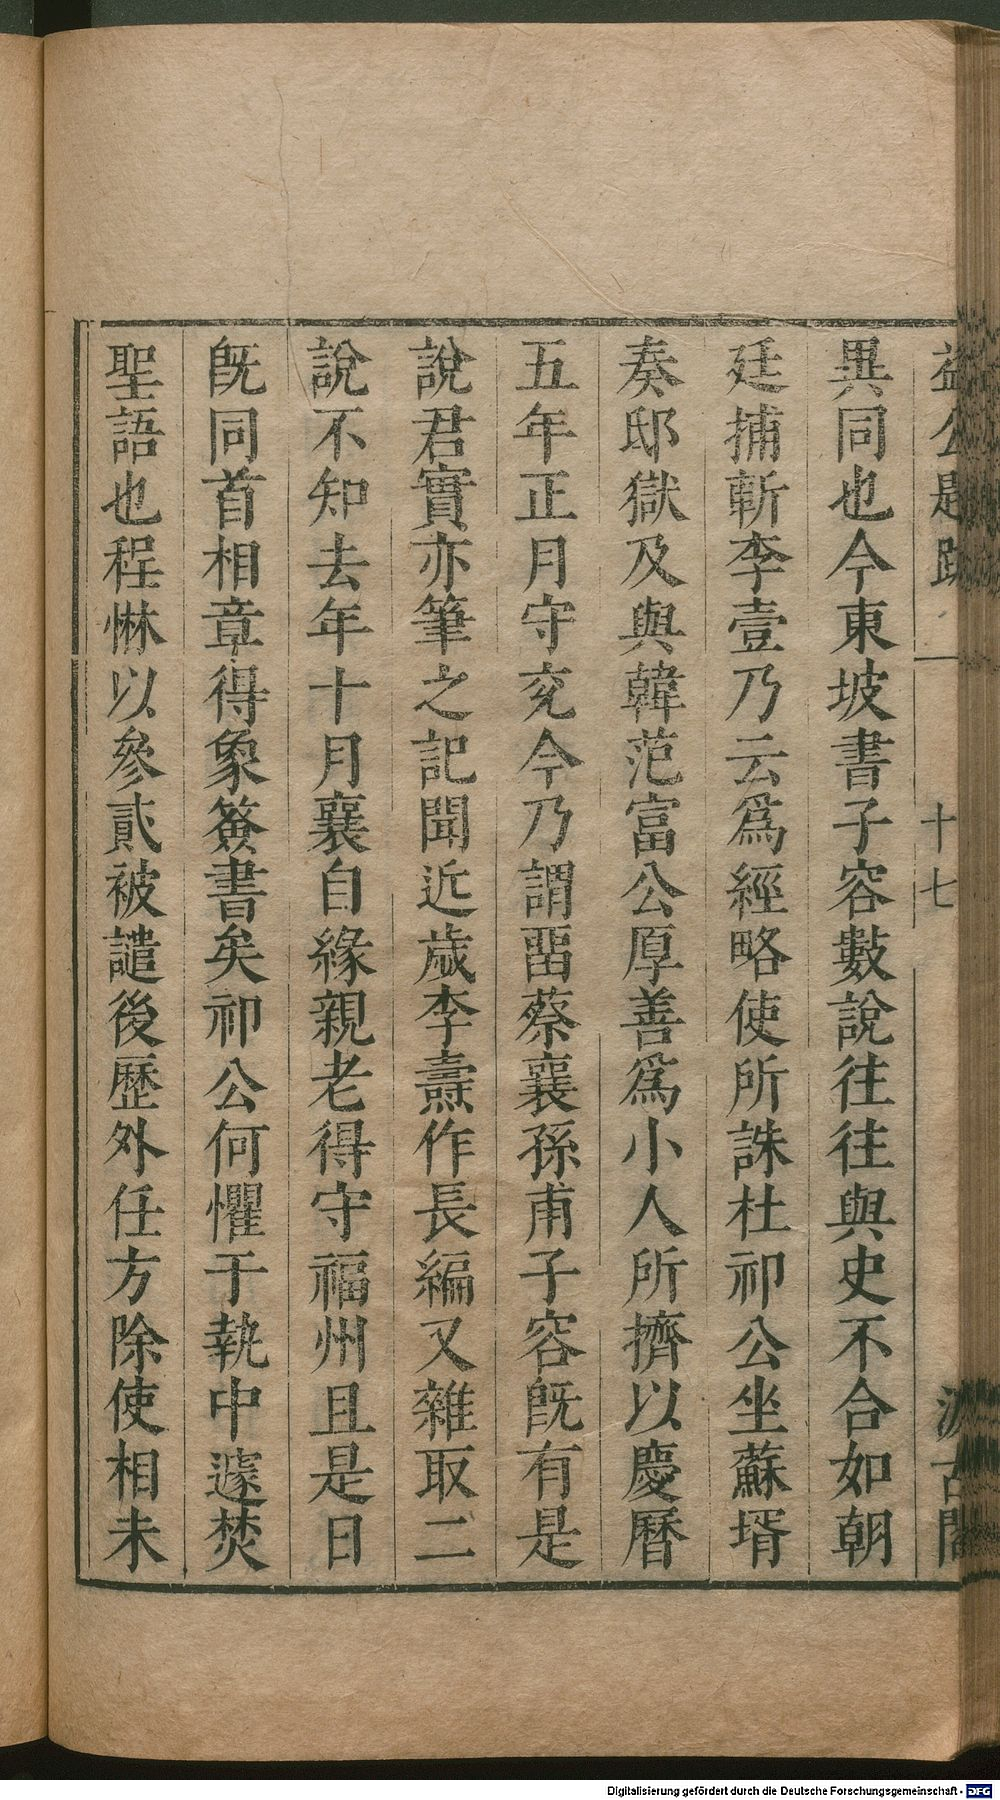 益公題跋 一 十七 汲古閣
異同也今東坡書子容數說往往與史不合如朝
廷捕斬李壹乃云爲經略使所誅杜祁公坐蘇壻
奏邸獄及與韓范富公厚善爲小人所擠以慶曆
五年正月守兖今乃謂畱蔡襄孫甫子容旣有是
說君實亦筆之記聞近歲李燾作長編又雜取二
說不知去年十月襄自緣親老得守福州且是日
旣同首相章得象簽書矣祁公何懼于執中遽焚
聖語也程惏以參貳被譴後歷外任方除使相未
Digitalisierung gefördert durch die Deutsche Forschungsgemeinschaft - DFG